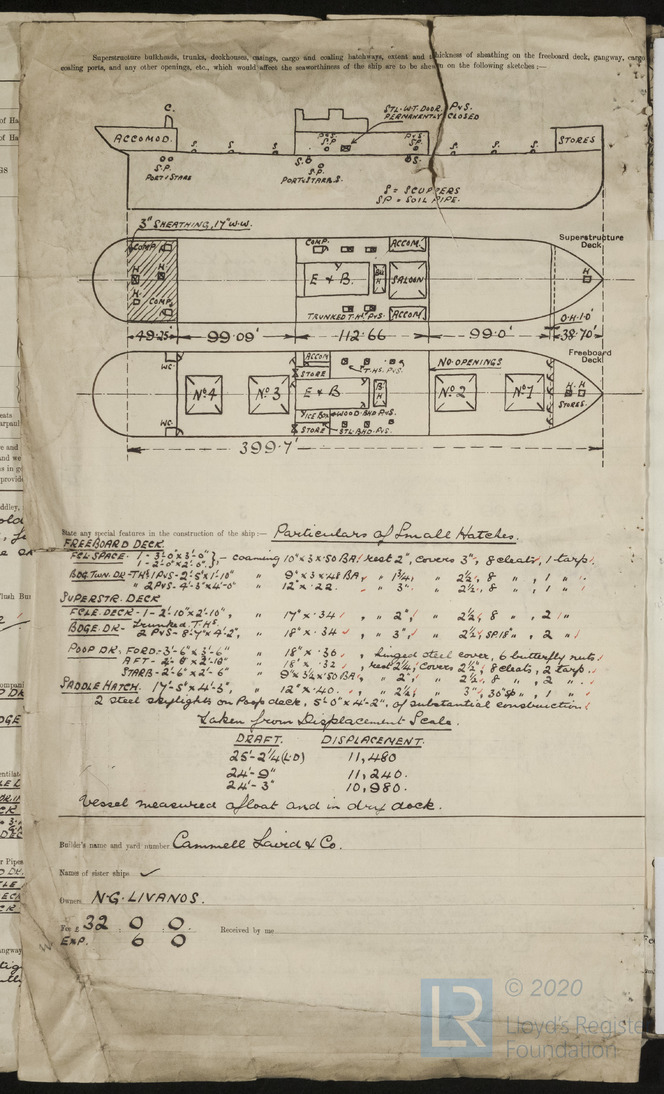 Superstructure bulkheads, trunks, deckhouses, casings, cargo and coaling hatchways, extent and thickness of sheathing on the freeboard deck, gangway, cargo
coaling ports, and any other openings, etc., which would affect the seaworthiness of the ship are to be shewn on the following sketches:—
C.
STL. W.T. DOOR P&S.
PERMANENTLY CLOSED
ACCOMOD.
P&S
S.P
P&S
S.P
STORES
S. S. S. S. S. S.
S.P.
PORT & STARB
S.
S.P.
PORT & STARB. S.
S.
S = SCUPPERS
SP = SOIL PIPE.
3" SHEATHING, 17" W.W.
Superstructure
Deck
COMP.
H
H
H
COMP.
COMP.
E & B.
SALOON
ACCOM.
ACCOM.
TRUNKED T.HS P&S.
H
O.H. 1.0'
49.25' 99.09' 112.66 99.0' 38.70'
Freeboard
Deck
W.C.
W.C.
Nº 4
Nº 3
ACCOM
STORE
T.HS. P&S.
E & B
B H
ICE BOX
WOOD BHD P&S.
STORE
STL. BHD. P&S.
NO OPENINGS
Nº 2
Nº 1
H H
STORES.
399.7'
State any special features in the construction of the ship:— Particulars of Small Hatches.
FREEBOARD DECK.
FCL SPACE. 1 - 3'-0" x 3'-0" } - coaming 10" x 3 x 50 BA, rest 2", covers 3", 8 cleats, 1 tarp.
1 - 2'-0" x 2'-0"
BDG TWN. DK - T.HS 1 P&S - 2'-5" x 1'-10" " 9" x 3 x 48 BA, " 1 3/4, " 2 1/2, 8 " , 1 "
" 2 P&S - 4'-3" x 4'-0" " 12" x .22. " 3". " 2 1/2, 8 " , 1 "
SUPERSTR. DECK
FCLE. DECK - 1 - 2'-10" x 2'-10", " 17" x .34 " 2", " 2 1/2, 8 " 2 "
BDGE. DK - Trunked T.HS.
2 P&S - 8'-7" x 4'-2", " 18" x .34 " 3", " 2 1/2, SP 18", " 2 "
POOP DK. FORD - 3'-6" x 3'-6" " 18" x .30 " hinged steel cover, 6 butterfly nuts
AFT - 2'-10" " 18" x .32 " rest 2 1/4, Covers 2 1/2", 8 cleats, 2 tarp
STARB - 2'-6" x 2'-6" " 9" x 3 1/2 x 50 BA, " 2", " 2 1/2, 8 " , 2 "
SADDLE HATCH. 17'-5" x 4'-3", " 12" x .40. " 2 1/2 " 3", 30" sp, 1 "
2 steel skylights on Poop deck, 5'-0" x 4'-2", of substantial construction.
Taken from Displacement Scale.
DRAFT. DISPLACEMENT.
25'-2 1/4 (LD) 11,480
24'-9" 11,240.
24'-3" 10,980.
Vessel measured afloat and in dry dock.
Builder's name and yard number Cammell Laird & Co.
Names of sister ships ✓
Owners N.G. LIVANOS.
Fee £ 32 0 0.
EXP. 6 0
Received by me
© 2020
Lloyd's Register
Foundation